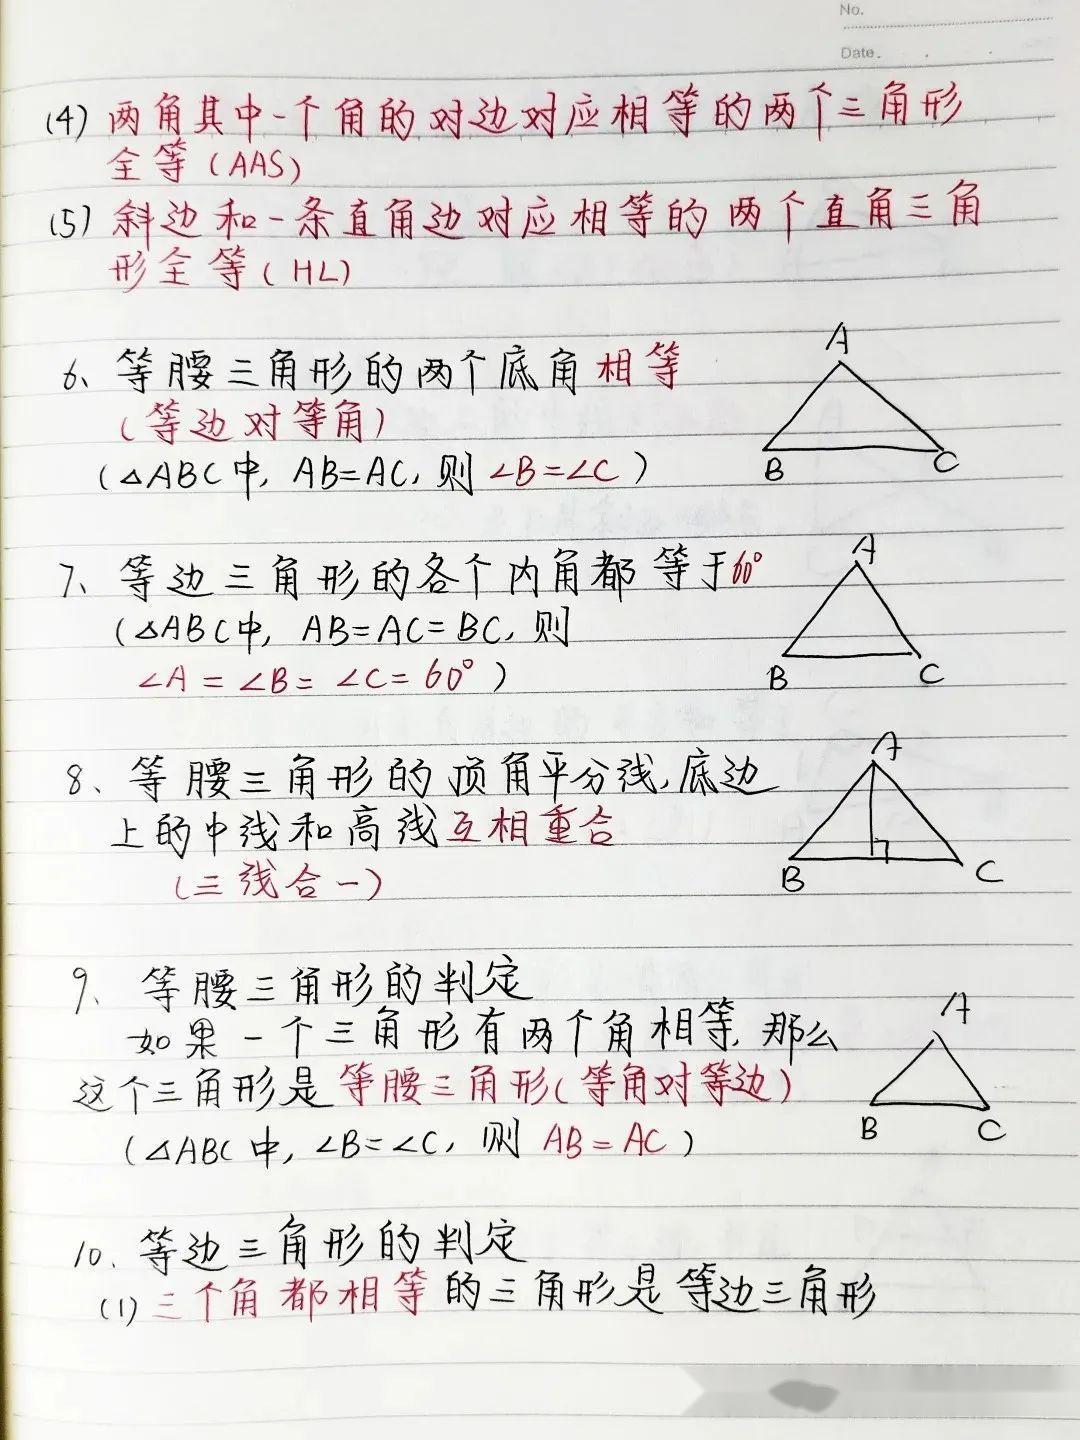 No.
Date.
(4) 两角其中一个角的对边对应相等的两个三角形
全等(AAS)
(5) 斜边和一条直角边对应相等的两个直角三角
形全等(HL)
6、等腰三角形的两个底角相等
(等边对等角)
(△ABC中, AB=AC, 则 ∠B=∠C)
A
B
C
7、等边三角形的各个内角都等于60°
(△ABC中, AB=AC=BC, 则
∠A=∠B=∠C=60°)
A
B
C
8、等腰三角形的顶角平分线,底边
上的中线和高线互相重合
(三线合一)
A
B
C
9、等腰三角形的判定
如果一个三角形有两个角相等,那么
这个三角形是等腰三角形(等角对等边)
(△ABC中, ∠B=∠C, 则 AB=AC)
A
B
C
10、等边三角形的判定
(1) 三个角都相等的三角形是等边三角形